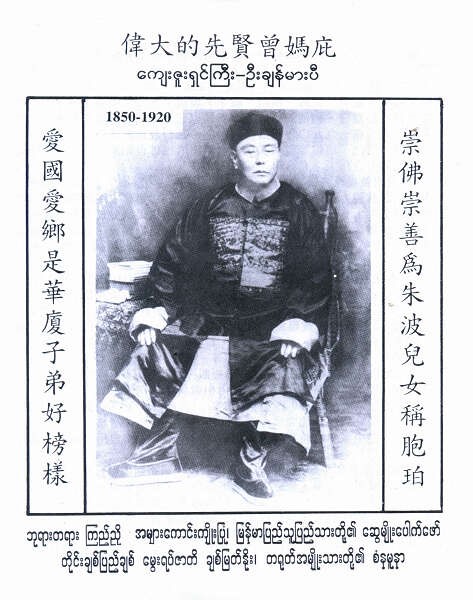 偉大的先賢曾媽庇
ကျေးဇူးရှင်ကြီး-ဦးချန်မားပီ
1850-1920
崇佛崇善爲朱波兒女稱胞珀
愛國愛鄉是華廈子弟好榜樣
ဘုရားတရား ကြည်ညို အများကောင်းကျိုးပြု မြန်မာပြည်သူပြည်သားတို့၏ ဆွေမျိုးပေါက်ဖော်
တိုင်းချစ်ပြည်ချစ် မွေးရပ်ဇာတိ ချစ်မြတ်နိုး၊ တရုတ်အမျိုးသားတို့၏ စံနမူနာ